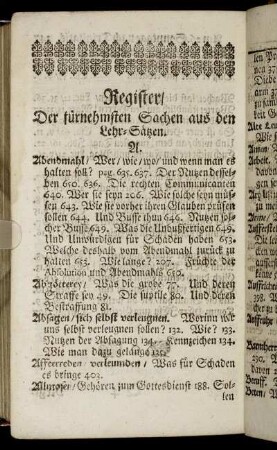 Register/
Der fürnehmsten Sachen aus den
Lehr-Sätzen.
A.
Abendmahl/ Wer/ wie/ wo/ und wenn man es
halten soll? pag. 635. 637. Der Nutzen dessel-
ben 610. 636. Die rechten Communicanten
640. Wer sie seyn 206. Wie solche seyn müs-
sen 643. Wie sie vorher ihren Glauben prüfen
sollen 644. Und Busse thun 646. Nutzen sol-
cher Busse 649. Was die Unbußfertigen 649.
Und Unwürdigen für Schaden haben 653.
Welche deshalb vom Abendmahl zurück zu
halten 653. Wie lange? Früchte der
Absolution und Abendmahls 630.
Abgötterey/ Was die grobe 77. Und deren
Straffe sey 49. Die suptile 80. Und deren
Bestraffung 81.
Absagen/ sich selbst verleugnen. Worinn wir
uns selbst verleugnen sollen? 132. Wie? 133.
Nutzen der Absagung 134. Kennzeichen 134.
Wie man dazu gelange 135.
Affterreden/ verleumden/ Was für Schaden
es bringe 402.
Allmosen/ Gehören zum Gottesdienst 188. Sol-
len